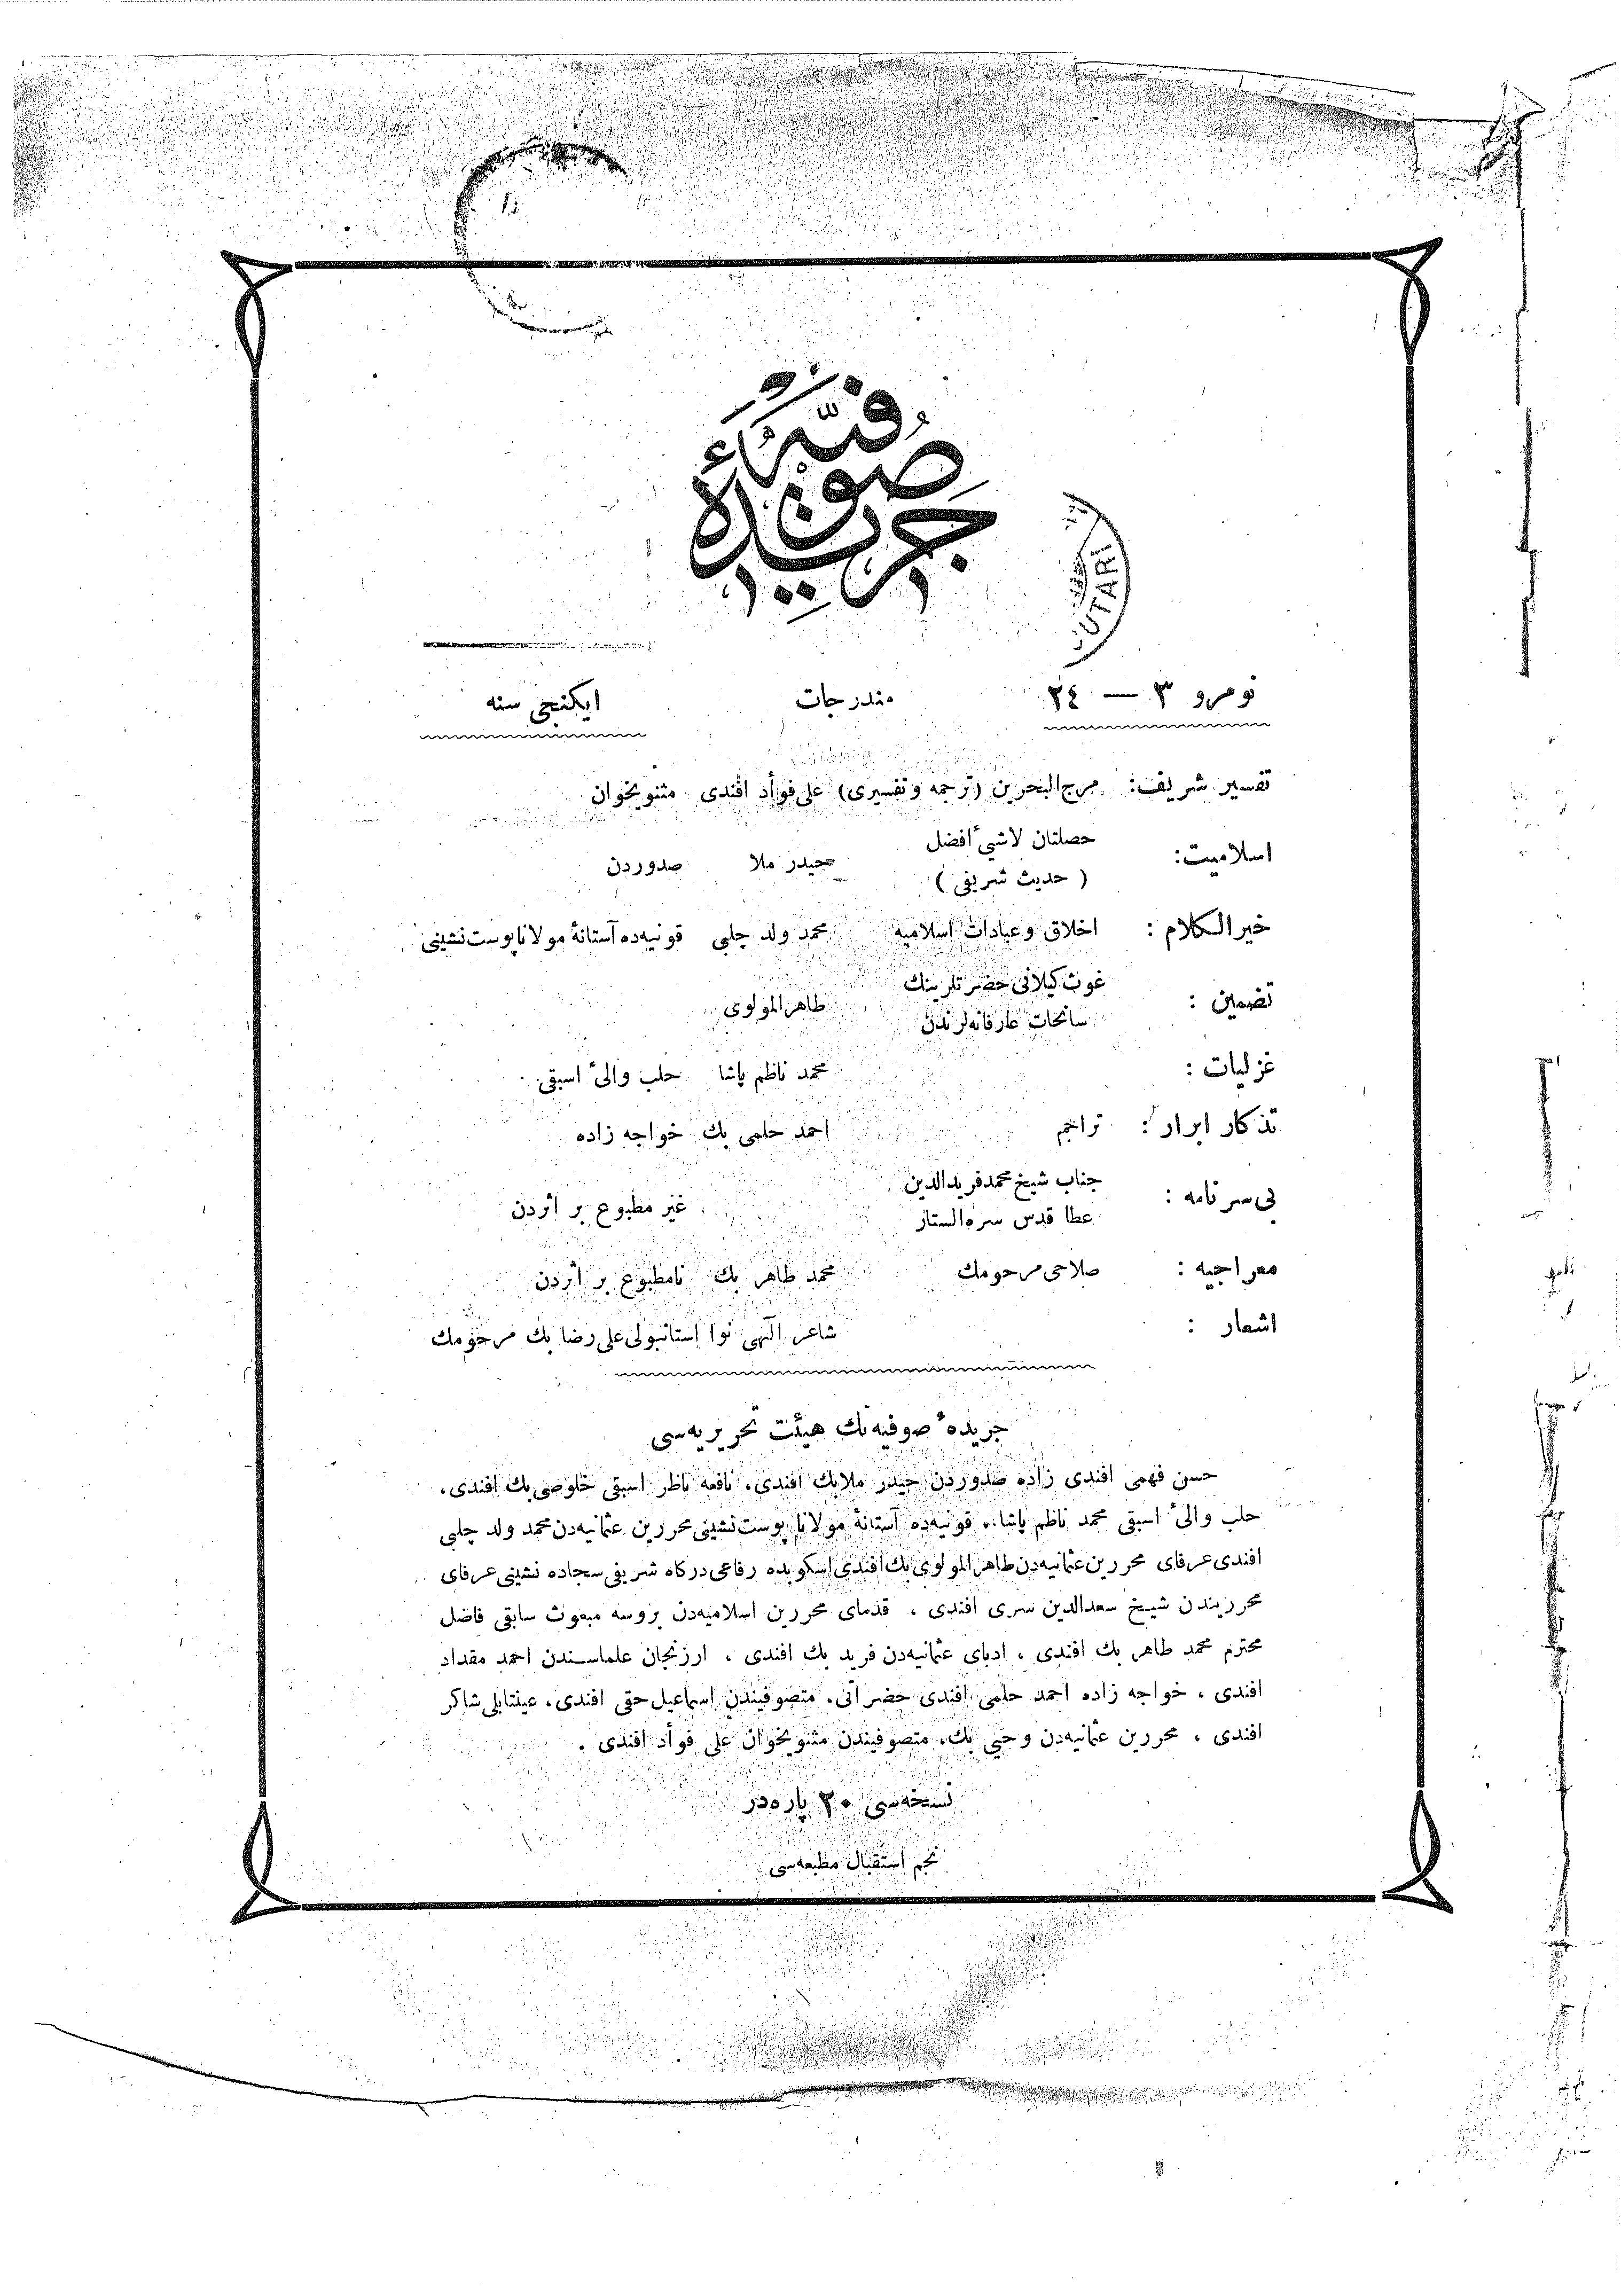 جريدۀ صوفيه
نومرو ٣ — ٢٤ مندرجات ايكنجى سنه
تفسير شريف: مرج البحرين (ترجمه وتفسيرى) على فوأد افندى مثنويخوان
اسلاميت: خصلتان لاشىٔ افضل
( حديث شريفى ) حيدر ملا صدوردن
خير الكلام : اخلاق وعبادات اسلاميه محمد ولد چلبى قونيه‌ده آستانۀ مولانا پوست‌نشينى
تضمين : غوث كيلانى حضرتلرينك
سانحات عارفانه‌لرندن طاهر المولوى
غزليات : محمد ناظم پاشا حلب والئ اسبقى
تذكار ابرار : تراجم احمد حلمى بك خواجه زاده
بى‌سرنامه : جناب شيخ محمد فريدالدين
عطا قدس سره الستار غير مطبوع بر اثردن
معراجيه : صلاحى مرحومك محمد طاهر بك نامطبوع بر اثردن
اشعار : شاعر الهى نوا استانبولى على رضا بك مرحومك
جريدۀ صوفيه‌نك هيئت تحريريه‌سى
حسن فهمى افندى زاده صدوردن حيدر ملابك افندى، نافعه ناظر اسبقى خلوصى بك افندى،
حلب والئ اسبقى محمد ناظم پاشا، قونيه‌ده آستانۀ مولانا پوست‌نشينى محررين عثمانيه‌دن محمد ولد چلبى
افندى عرفاى محررين عثمانيه‌دن طاهر المولوى بك افندى اسكوبده رفاعى دركاه شريفى سجاده نشينى عرفاى
محرريندن شيخ سعدالدين سرى افندى ، قدماى محررين اسلاميه‌دن بروسه مبعوث سابقى فاضل
محترم محمد طاهر بك افندى ، ادباى عثمانيه‌دن فريد بك افندى ، ارزنجان علماسندن احمد مقداد
افندى ، خواجه زاده احمد حلمى افندى حضراتى، متصوفيندن اسماعيل حقى افندى، عينتابلى شاكر
افندى ، محررين عثمانيه‌دن وحيى بك، متصوفيندن مثنويخوان على فوأد افندى .
نسخه‌سى ٢٠ پاره‌در
نجم استقبال مطبعه‌سى